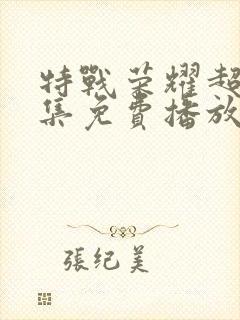 特戰荣耀超
集免費播放
張纪美